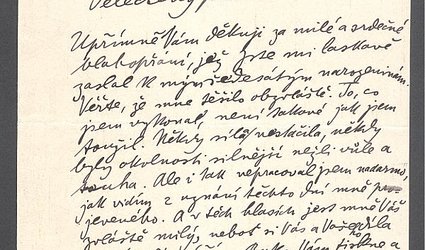 Upřímně Vám děkuji za milé a srdečné
blahopřání, jež jste mi laskavě
zaslal k mým šedesátým narozeninám.
Věřte, že mne těšilo obzvláště. To, co
jsem vykonal, není takové jak jsem
toužil. Někdy síly nestačily, někdy
byly okolnosti silnější nežli vůle a
touha. Ale i tak nepracoval jsem nadarmo,
jak vidím z uznání těchto dní mně
jeveného. A v těch hlasích jest mně Váš
zvláště milý, neboť si Vás a Vašeho díla
Vám tiskne a